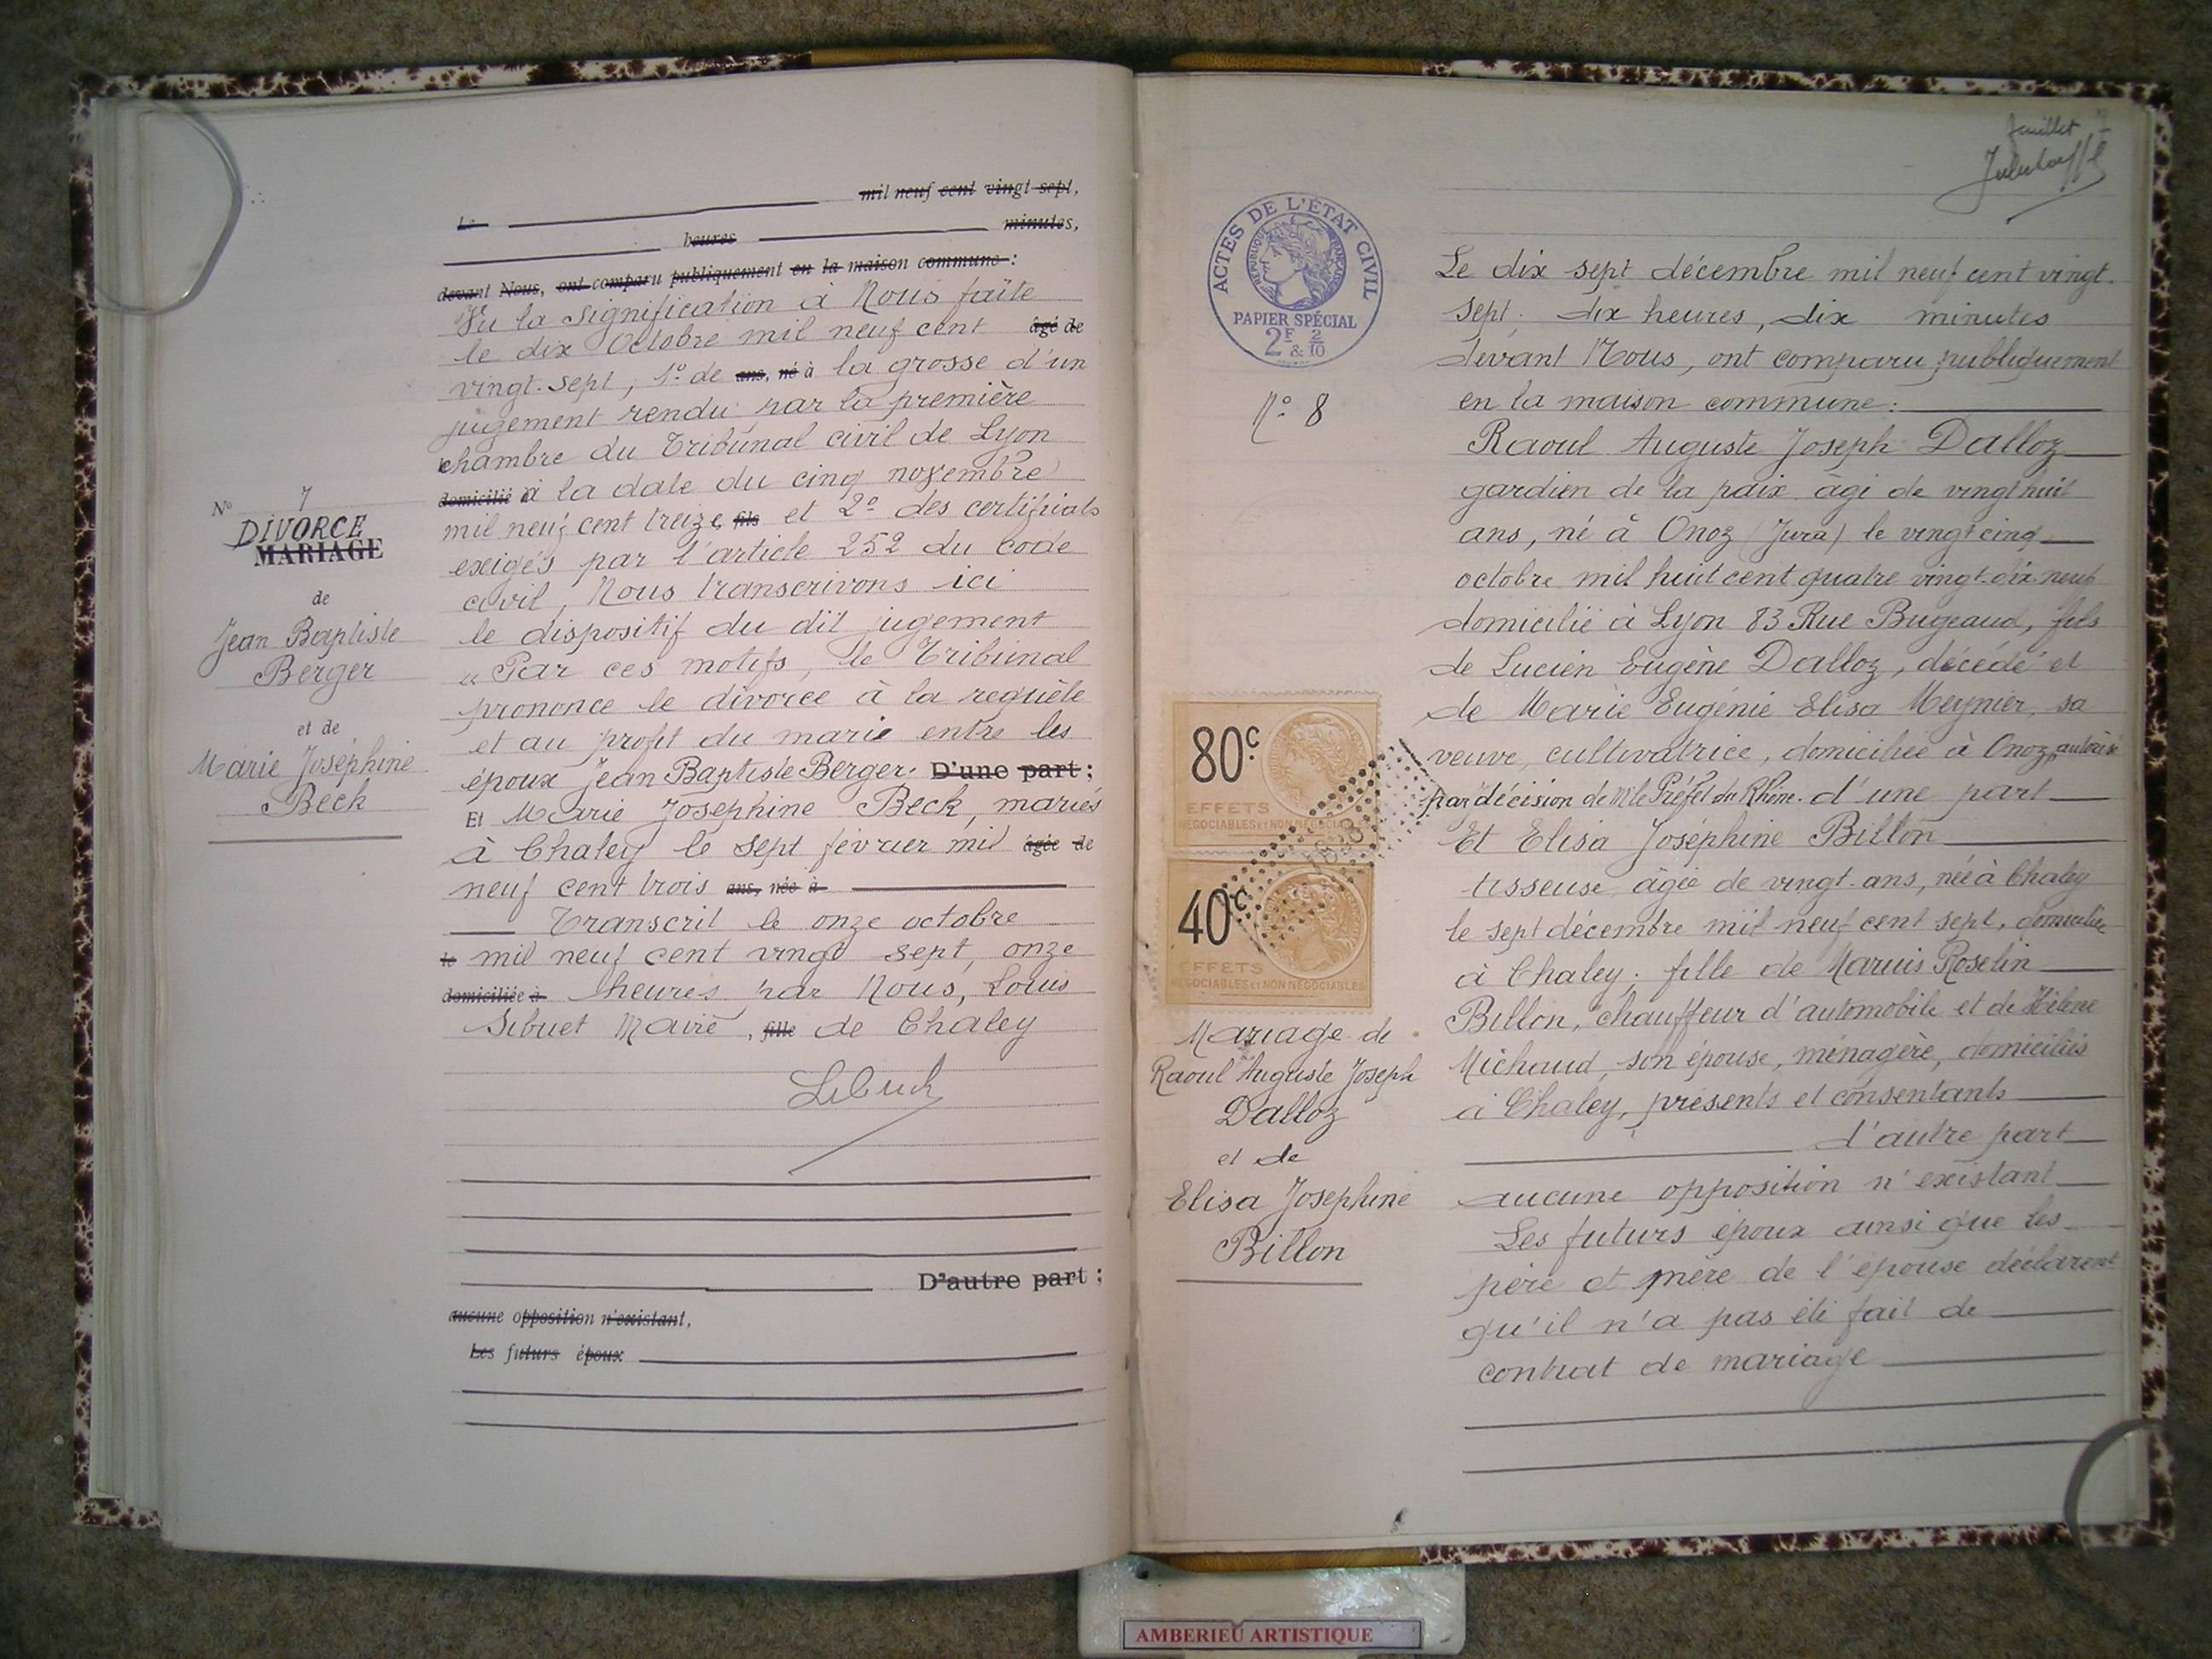 Le mil neuf cent vingt-sept,
heures minutes,
devant Nous, ont comparu publiquement en la maison commune :
Vu la signification à Nous faite
le dix Octobre mil neuf cent âgé de
vingt-sept, 1º de ans, né à la grosse d'un
jugement rendu par la première
chambre du Tribunal civil de Lyon
domicilié à à la date du cinq novembre
mil neuf cent treize fils et 2º des certificats
exigés par l'article 252 du Code
civil, Nous transcrivons ici
le dispositif du dit jugement
« Par ces motifs, le Tribunal
prononce le divorce à la requête
et au profit du marie entre les
époux Jean Baptiste Berger. D'une part ;
Et Marie Josephine Beck, mariés
à Chaley le sept février mil âgée de
neuf cent trois ans, née à
Transcrit le onze octobre
le mil neuf cent vingt sept, onze
domiciliée à heures par Nous, Louis
Sibuet Maire, fille de Chaley
D'autre part ;
aucune opposition n'existant,
Les futurs époux
Nº 7
DIVORCE
MARIAGE
de
Jean Baptiste
Berger
et de
Marie Joséphine
Beck
feuillet 7
ACTES DE L'ÉTAT CIVIL
RÉPUBLIQUE FRANÇAISE
PAPIER SPÉCIAL
2F & 2/10
Nº 8
80c
EFFETS
NÉGOCIABLES ET NON NÉGOCIABLES
40c
EFFETS
NÉGOCIABLES ET NON NÉGOCIABLES
Mariage de
Raoul Auguste Joseph
Dalloz
et de
Elisa Josephine
Billon
Le dix sept décembre mil neuf cent vingt-
sept, dix heures, dix minutes
devant Nous, ont comparu publiquement
en la maison commune :
Raoul Auguste Joseph Dalloz
gardien de la paix âgé de vingt huit
ans, né à Onoz (Jura) le vingt cinq
octobre mil huit cent quatre vingt-dix-neuf
domicilié à Lyon 83 Rue Bugeaud, fils
de Lucien Eugène Dalloz, décédé et
de Marie Eugénie Elisa Meynier, sa
veuve, cultivatrice, domiciliée à Onoz, autorisé
par décision de Mr le Préfet du Rhône. d'une part
Et Elisa Joséphine Billon
tisseuse âgée de vingt-ans, née à Chaley
le sept décembre mil neuf cent sept, domiciliée
à Chaley, fille de Marius Roselin
Billon, chauffeur d'automobile et de Hélène
Michaud, son épouse, ménagère, domiciliés
à Chaley, présents et consentants
d'autre part
aucune opposition n'existant
Les futurs époux ainsi que les
père et mère de l'épouse déclarent
qu'il n'a pas été fait de
contrat de mariage
AMBERIEU ARTISTIQUE